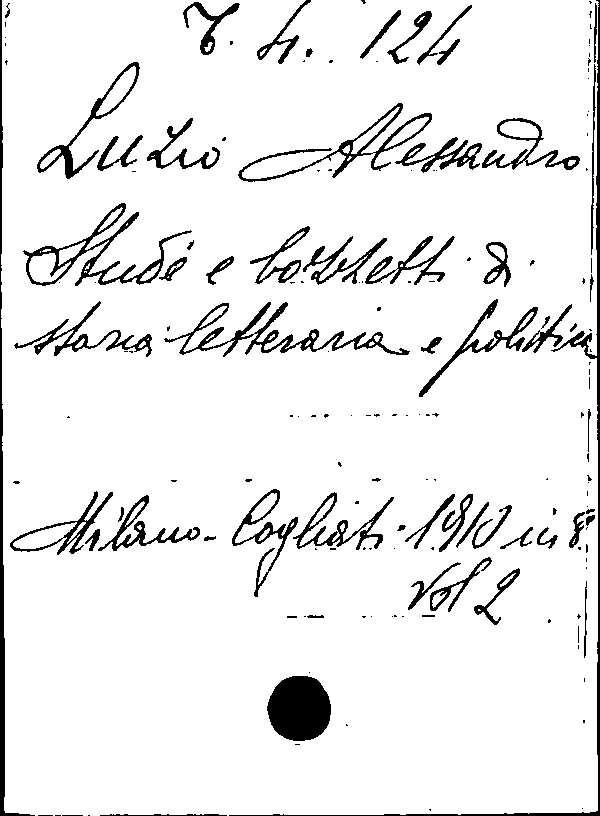 7. 4. 124
Luzio Alessandro
Studi e bozzetti di
storia letteraria e politica
Milano - Cogliati - 1910 in 8º
Vol 2